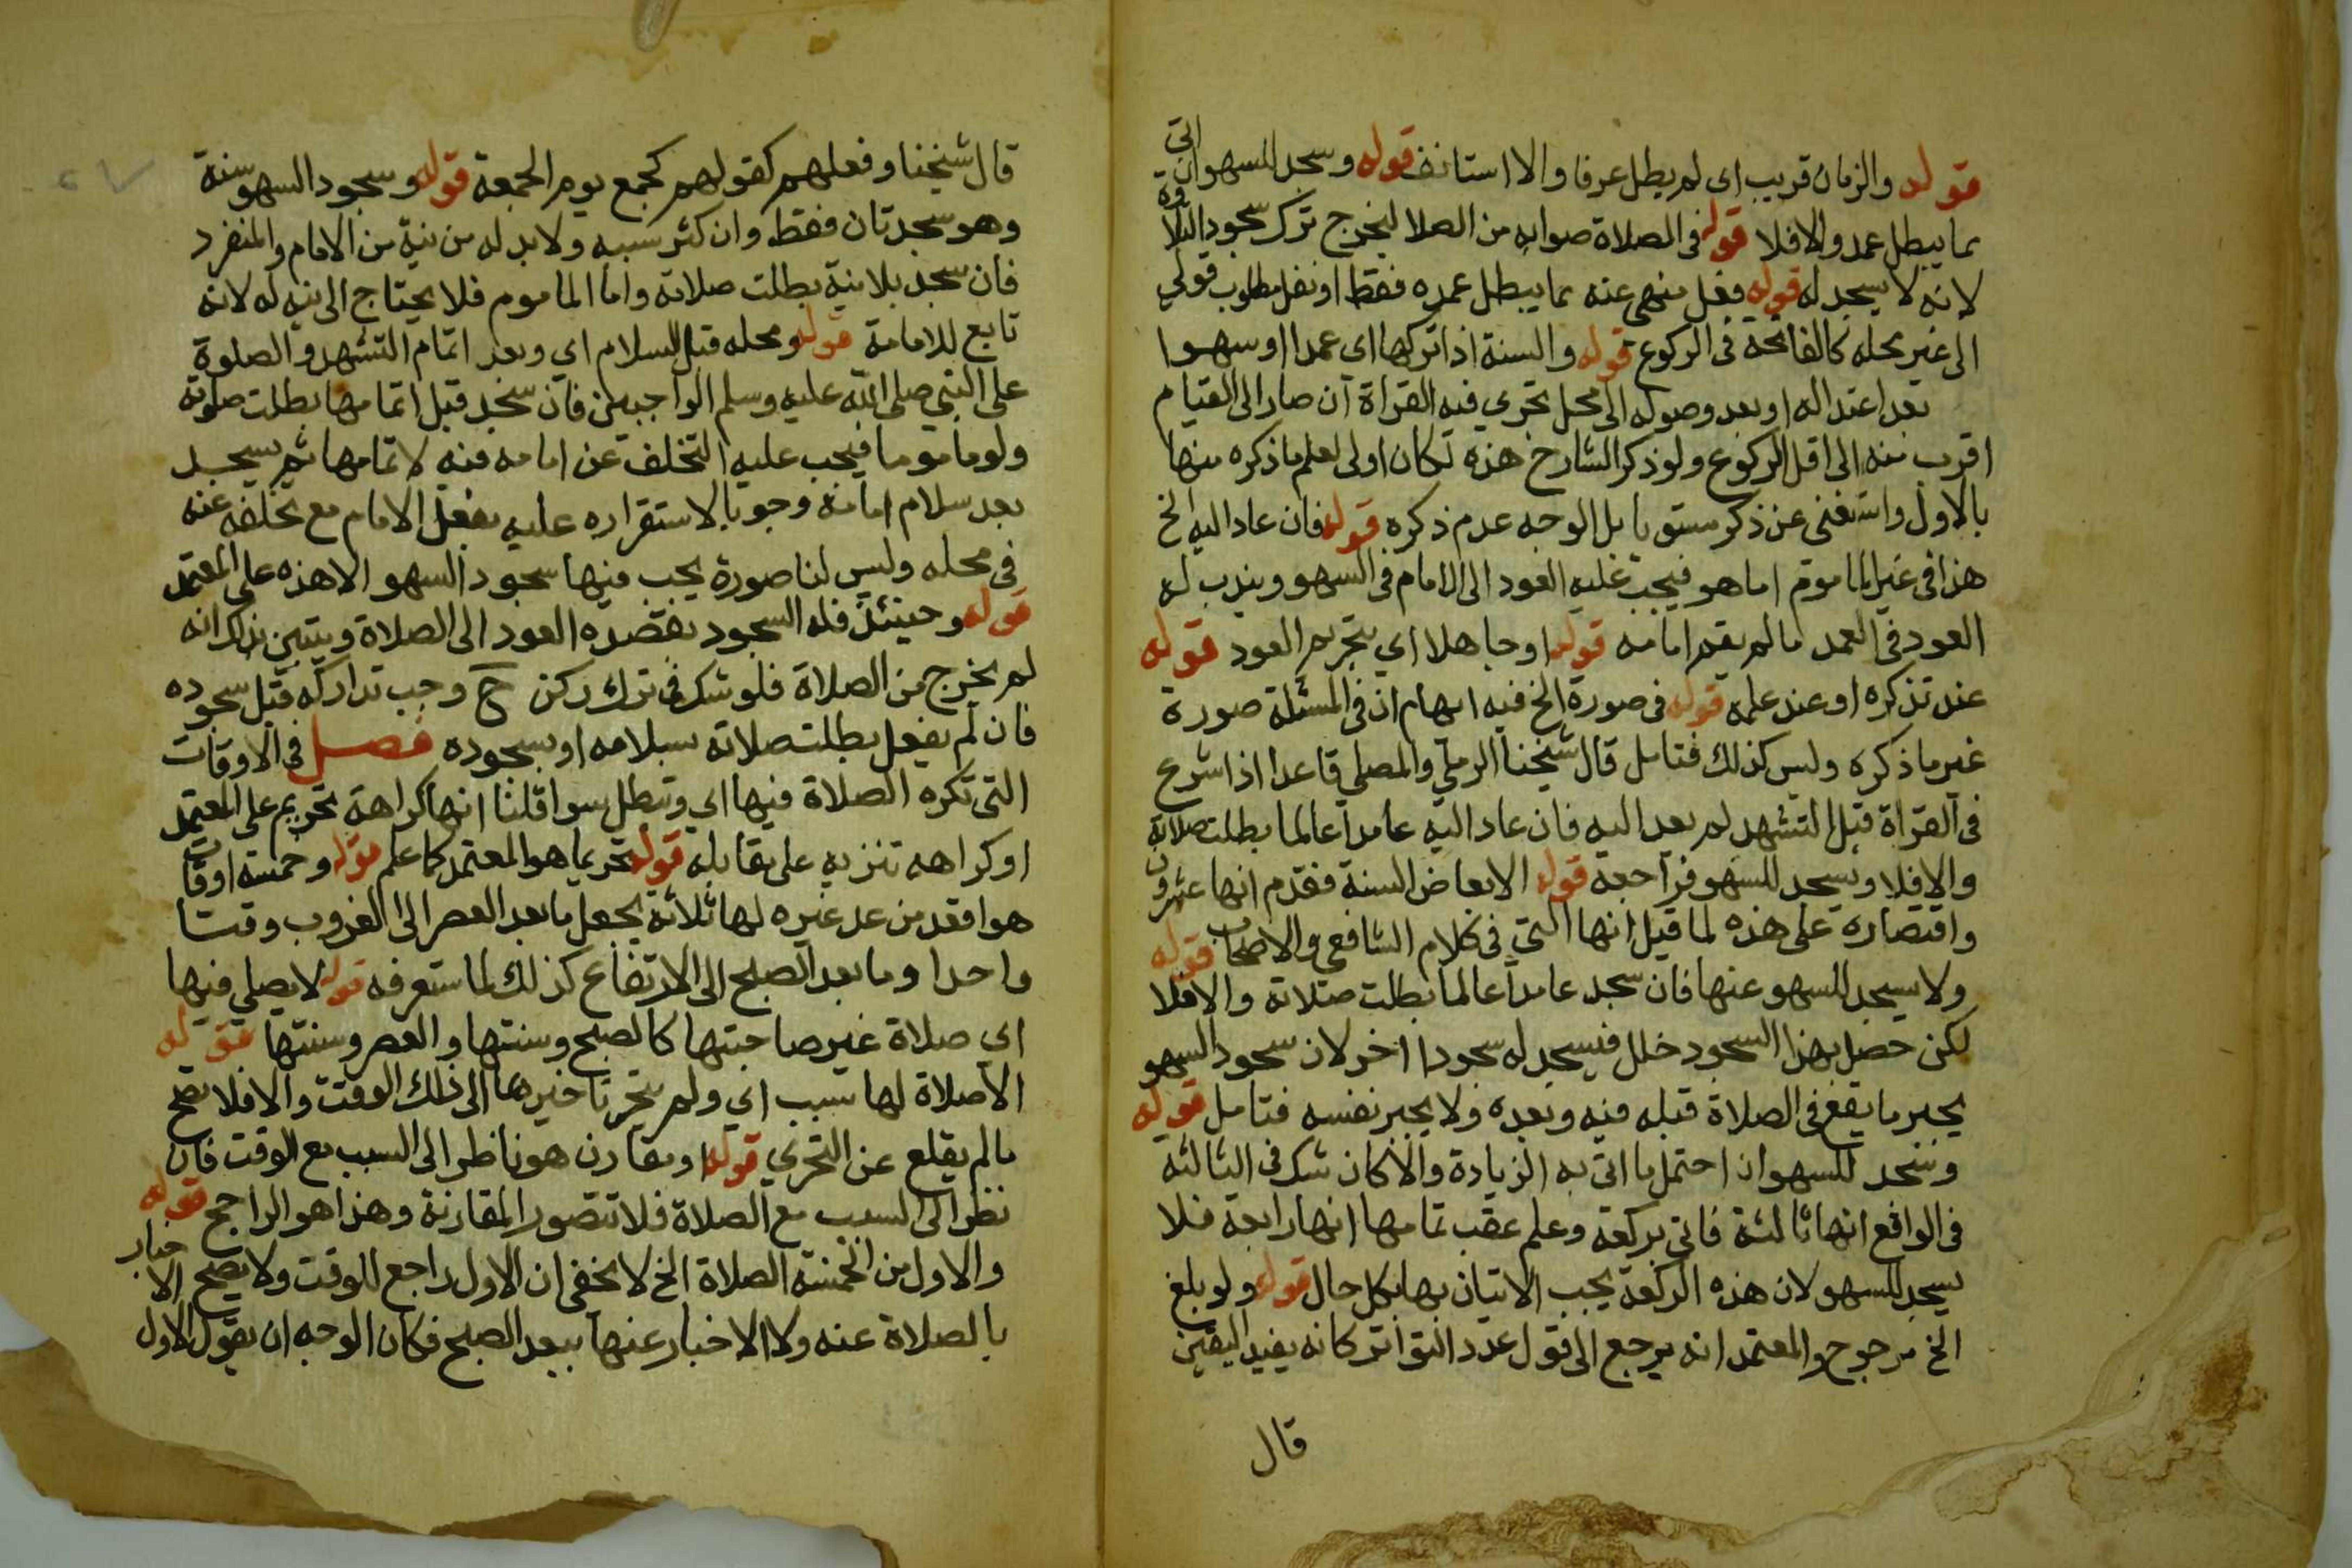 قوله والزمان قريب اى لم يطل عرفا والا استانف قوله وسجد للسهو ان اتى
بما يبطل عمده والا فلا قوله فى الصلاة صوابه من الصلا ليخرج ترك سجود التلاوة
لانه لا يسجد له قوله فعل منهى عنه بما يبطل عمده فقط او نفل مطلوب قولي
الى غير محله كالفاتحة فى الركوع قوله والسنة اذا تركها اى عمدا او سهوا
بعد اعتداله او بعد وصوله الى محل تجزي فيه القراة ان صار الى القيام
اقرب منه الى اقل الركوع ولو ذكر الشارح هذه لكان اولى لعلم ما ذكره منها
بالاول واستغنى عن ذكر مستويا بل الوجه عدم ذكره قوله فان عاد اليه الخ
هذا فى غير الماموم اما هو فيجب عليه العود الى الامام فى السهو ويندب له
العود فى العمد ما لم يقم امامه قوله او جاهلا اي بتحريم العود قوله
عند تذكره او عند علمه قوله فى صورة الخ فيه ايهام ان فى المسئلة صورة
غير ما ذكره وليس كذلك فتامل قال شيخنا الرملي والمصلي قاعدا اذا شرع
فى القراة قبل التشهد لم يعد اليه فان عاد اليه عامدا عالما بطلت صلاته
والا فلا ويسجد للسهو فراجعه قوله الابعاض السنة فقدم انها عشرون
واقتصاره على هذه لما قيل انها التي فى كلام الشافعي والاصحاب قوله
ولا يسجد للسهو عنها فان سجد عامدا عالما بطلت صلاته والا فلا
لكن حصل بهذا السجود خلل فيسجد له سجودا اخر لان سجود السهو
يجبر ما يقع فى الصلاة قبله فيه وبعده ولا يجبر نفسه فتامل قوله
وسجد للسهو ان احتمل ما اتى به الزيادة والا كان شك فى الثالثة
فى الواقع انها ثالثة فاتى بركعة وعلم عقب تمامها انها رابعة فلا
يسجد للسهو لان هذه الركعة يجب الاتيان بها بكل حال قوله ولو بلغ
الخ مرجوح والمعتمد انه يرجع الى قول عدد التواتر كانه يفيد اليقين
قال
قال شيخنا وفعلهم كقولهم كجمع يوم الجمعة قوله وسجود السهو سنة
وهو سجدتان فقط وان كثر سببه ولا بد له من نية من الامام والمنفرد
فان سجد بلا نية بطلت صلاته واما الماموم فلا يحتاج الى نية له لانه
تابع للامامة قوله ومحله قبل السلام اي وبعد اتمام التشهد والصلوة
على النبي صلى الله عليه وسلم الواجبين فان سجد قبل اتمامها بطلت صلوته
ولو ماموما فيجب عليه التخلف عن امامه فيه لاتمامها ثم يسجد
بعد سلام امامه وجوبا لاستقراره عليه بفعل الامام مع تخلفه عنه
فى محله وليس لنا صورة يجب فيها سجود السهو الا هذه على المعتمد
قوله وحينئذ فله السجود بقصده العود الى الصلاة ويتبين بذلك انه
لم يخرج من الصلاة فلو شك فى ترك ركن ح وجب تداركه قبل سجوده
فان لم يفعل بطلت صلاته بسلامه او بسجوده فصل فى الاوقات
التى تكره الصلاة فيها اي وتبطل سوا قلنا انها كراهة تحريم على المعتمد
او كراهه تنزيه على مقابله قوله تحريما هو المعتمد كما علم قوله وخمسة اوقات
هو افقد من عد غيره لها ثلاثة بجعل ما بعد العصر الى الغروب وقتا
واحدا وما بعد الصبح الى الارتفاع كذلك لما ستعرفه قوله لا يصلي فيها
اي صلاة غير صاحبتها كالصبح وسنتها والعصر وسنتها قوله
الا صلاة لها سبب اي ولم يتحر تاخيرها الى ذلك الوقت والا فلا تصح
ما لم يقلع عن التحري قوله او مقارن هو ناظر الى السبب مع الوقت فان
نظر الى السبب مع الصلاة فلا تتصور المقارنة وهذا هو الراجح قوله
والاول من الخمسة الصلاة الخ لا يخفى ان الاول راجع للوقت ولا يصح الاخبار
بالصلاة عنه ولا الاخبار عنها ببعد الصبح فكان الوجه ان يقول الاول